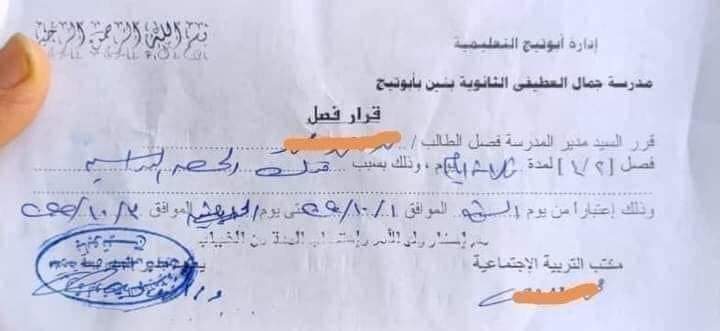 بسم الله الرحمن الرحيم
إدارة أبوتيج التعليمية
مدرسة جمال العطيفى الثانوية بنين بأبوتيج
قرار فصل
قرر السيد مدير المدرسة فصل الطالب /
فصل [ ١/٢ ] لمدة ثلاثة أيام ، وذلك بسبب الحصص الدراسية
وذلك إعتباراً من يوم السبت الموافق ١/١٠/ حتى يوم الموافق ٣/١٠/
مع إخطار ولى الأمر وإحتساب المدة من الغياب
مكتب التربية الإجتماعية